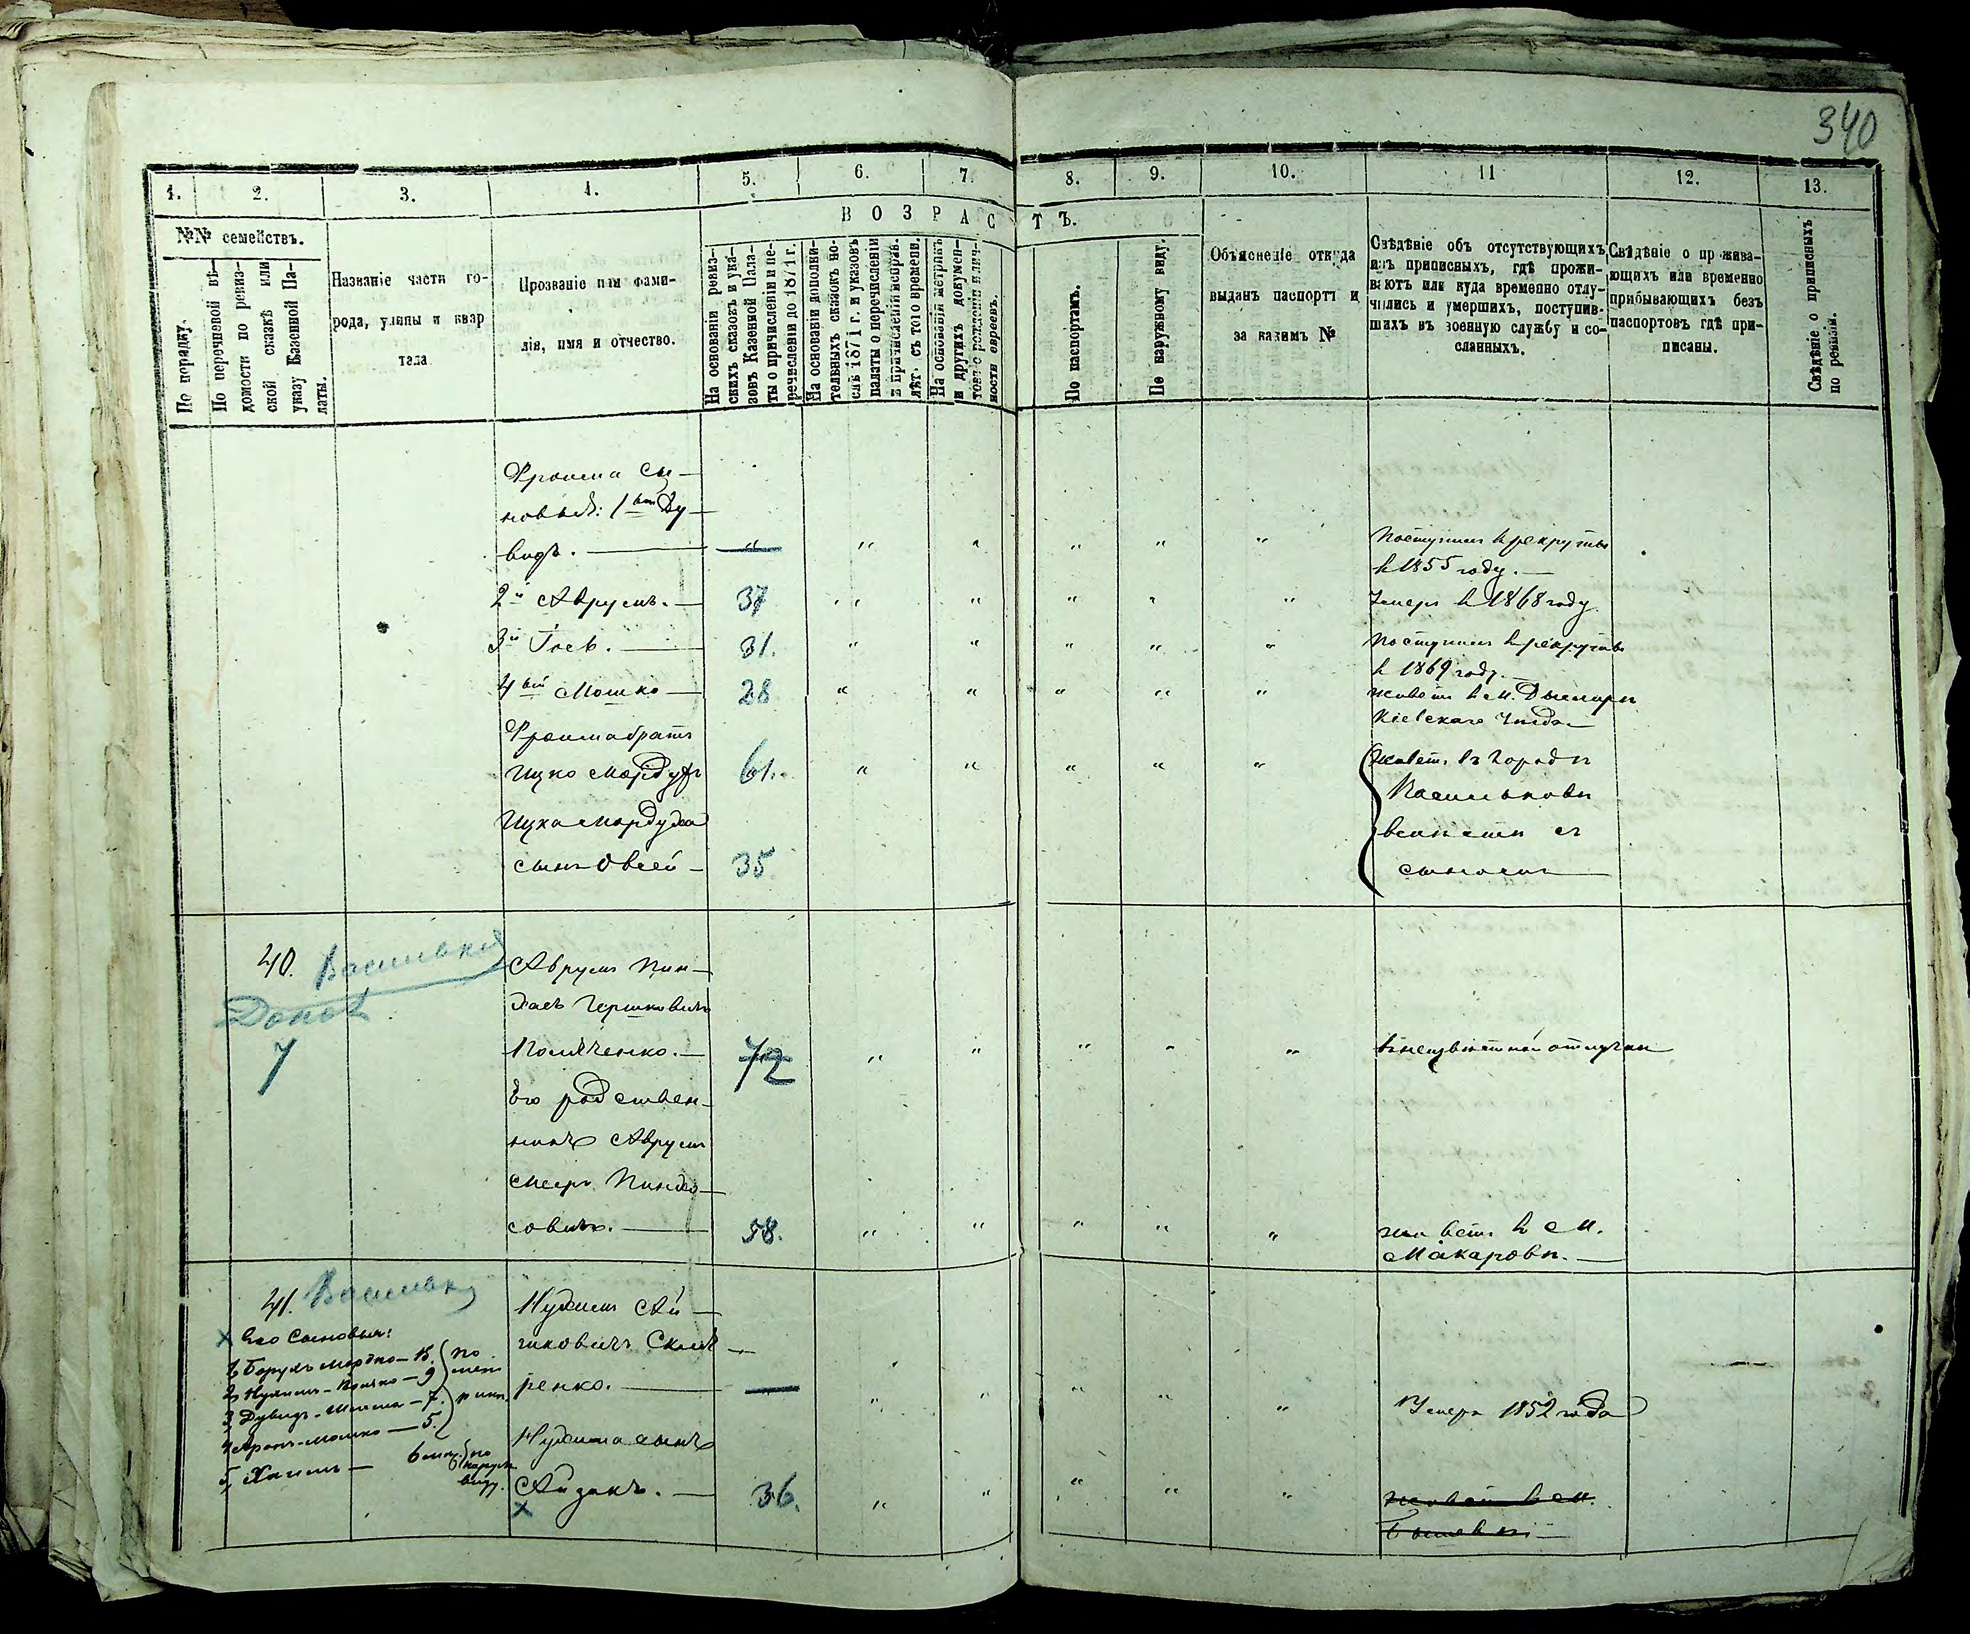 340
1.
2.
3.
4.
5.
6.
7.
8.
9.
10.
11
12.
13.
ВОЗРАСТЪ.
№№ семействъ.
По порядку.
По перечневой вѣ-
домости по ревиз-
ской сказкѣ или
указу Казенной Па-
латы.
Названіе части го-
рода, улицы и квар
тала
Прозваніе или фами-
лія, имя и отчество.
На основаніи ревиз-
скихъ сказокъ и ука-
зовъ Казенной Пала-
ты о причисленіи и пе-
речисленіи до 1871 г.
На основаніи дополни-
тельныхъ сказокъ по-
слѣ 1871 г. и указовъ
палаты о перечисленіи
и причисленіи исправ.
лѣт. съ того времени.
На основаніи метрикъ
и другихъ докумен-
товъ о рожденіи и лич-
ности евреевъ.
По паспортамъ.
По наружному виду.
Объясненіе откуда
выданъ паспортъ и
за какимъ №
Свѣдѣніе объ отсутствующихъ
изъ приписныхъ, гдѣ прожи-
ваютъ или куда временно отлу-
чились и умершихъ, поступив-
шихъ въ военную службу и со-
сланныхъ.
Свѣдѣніе о прожива-
ющихъ или временно
прибывающихъ безъ
паспортовъ гдѣ при-
писаны.
Свѣдѣніе о приписныхъ
по ревизіи.
Фроима сы-
новья: 1вый Ду-
видъ. — „ „ „ „ „ „ Поступилъ в рекруты
в 1855 году. —
2й Аврумъ. — 37 „ „ „ „ „ Умеръ в 1868 году
3й Іось. — 31. „ „ „ „ „ Поступилъ в рекруты
в 1869 году. —
4вый Мошко — 28 „ „ „ „ „ живетъ в м. Дымеръ
Кіевскаго уѣзда —
Фроима братъ
Ицко Мордухъ 61. „ „ „ „ „ живетъ въ городѣ
Васильковѣ
вмѣстѣ съ
сыномъ
Ицка Мордуха
сынъ Овсей — 35
40. Васильков
7
Аврумъ Пин-
хасъ Гершковичъ
Поляченко. — 72 „ „ „ „ „ в неизвѣстной отлучкѣ
Его родствен-
никъ Аврумъ
Мееръ Пинхо-
совичъ. — 58. „ „ „ „ „ живетъ в м.
Макаровѣ. —
41. Васильков
Нухимъ Ай-
зиковичъ Скля-
ренко. — „ „ „ „ „ Умеръ 1852 года
Нухима сынъ
Айзикъ. — 36. „ „ „ „ „ живетъ в м.
х
х Его сыновья:
1, Борухъ Мордко — 12.
2, Нухимъ-Іосько — 9
3, Дувидъ — 7.
4, Аронъ-Мошко — 5.
по
метрик.
5, Хаимъ — 6 мѣс. по
наружн
виду.